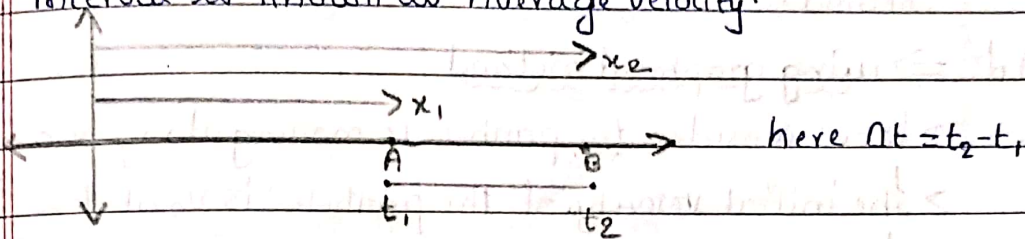 interval is known as Average velocity.
x2
x1
here Δt = t2 - t1
A B
t1 t2